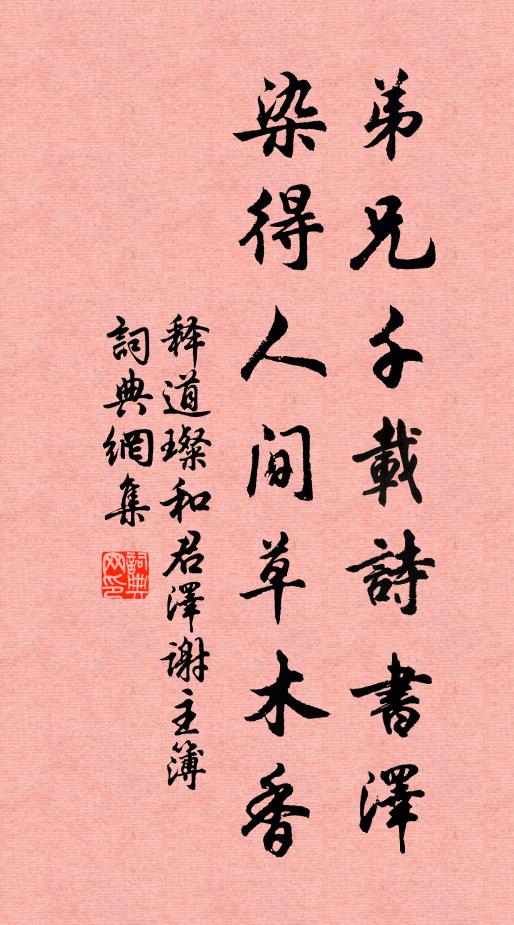 弟兄千載詩書澤
染得人間草木香
释道璨和君澤谢主簿
詞典網集
詞典网印